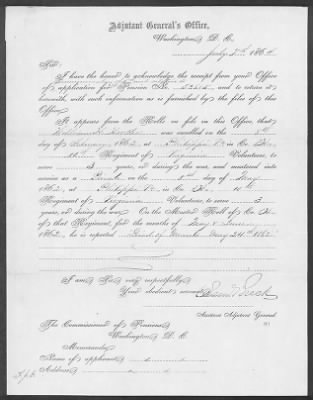 Adjutant General's Office,
Washington, D. C.
July 186
Sir:
I have the honor to acknowledge the receipt from your Office
of application for Pension No. and to return it
herewith, with such information as is furnished by the files of this
Office.
It appears from the Rolls on file in this Office, that
was enrolled on the
day of February, 1862, at Philippi Va in Co.
10th Regiment of Virginia Volunteers, to
serve 3 years, or during the war, and mustered into
service as a on the day of May
1862, at Philippi Va in Co. 10th
Regiment of Virginia Volunteers, to serve 3
years, or during the war. On the Muster Roll of Co.
of that Regiment, for the months of May & June
1862, he is reported May 24th 1862
I am Sir, very respectfully,
Your obedient servant,
Assistant Adjutant General
The Commissioner of Pensions
Washington D. C.
Memoranda:
Name of applicant
Address